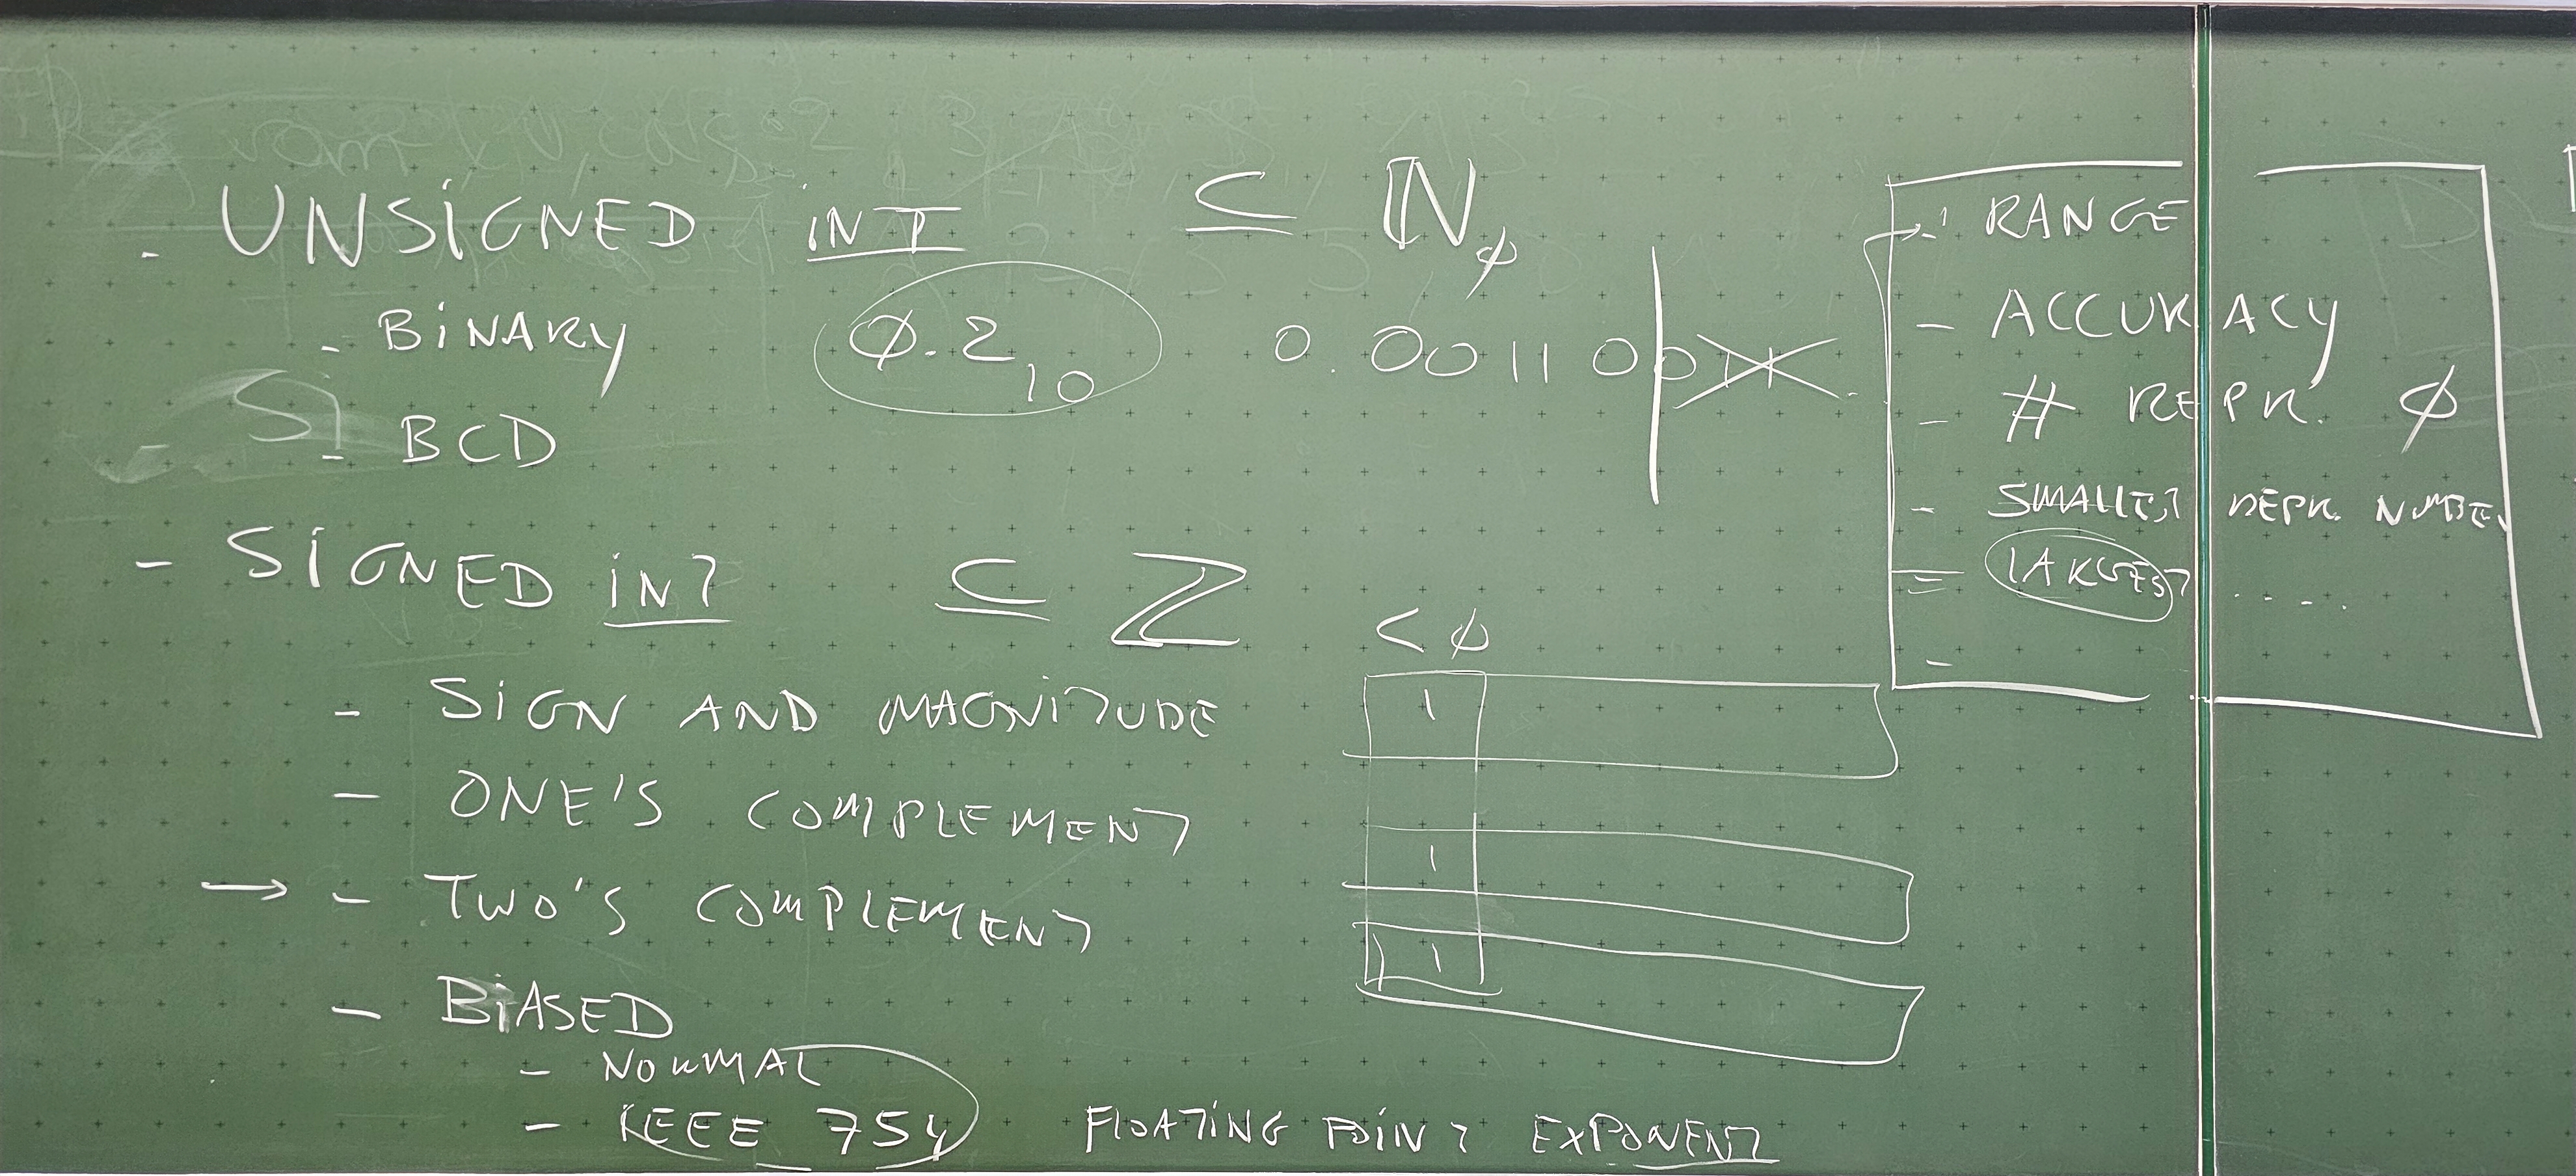 - UNSIGNED INT ⊆ ℕ∅
- BINARY ∅.2₁₀ 0.0011 00
- BCD
- SIGNED INT ⊆ ℤ
< ∅
- SIGN AND MAGNITUDE 1
- ONE'S COMPLEMENT 1
→ - TWO'S COMPLEMENT 1
- BIASED
- NORMAL
- IEEE 754 FLOATING POINT EXPONENT
- RANGE
- ACCURACY
- # REPR. ∅
- SMALLEST REPR. NUMBER
- LARGEST ....
-